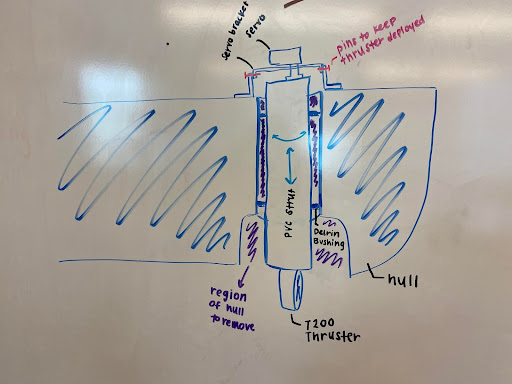 servo bracket
servo
pins to keep
thruster deployed
PVC strut
Delrin
Bushing
hull
region
of hull
to remove
T200
Thruster